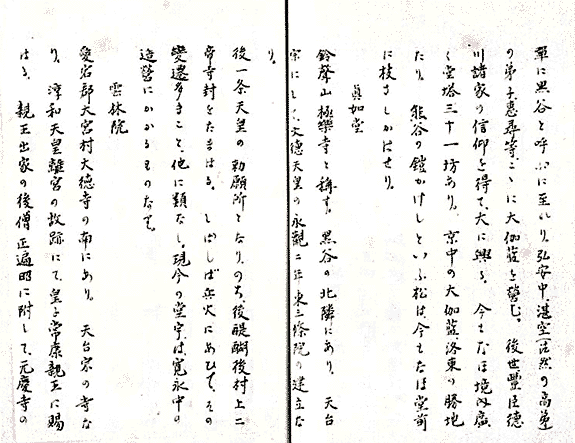 單に黒谷と呼ぶに至れり。弘安中、湛空法然の高弟
の弟子惠尋等こゝに大伽藍を營む。後世豐臣德
川諸家の信仰を得て、大に興る。今もなほ境内廣
く堂塔三十一坊あり。京中の大伽藍洛東の勝地
たり。熊谷の鎧かけしといふ松は、今もなほ堂前
に枝さしかはせり。
眞如堂
鈴聲山極樂寺と稱す。黒谷の北隣にあり。天台
宗にして、文德天皇の永觀二年東三條院の建立な
り。
後一条天皇の勅願所となり、のち後醍醐後村上二
帝寺封をたまはる。しばしば兵火にあひて、その
變遷多きこと、他に類なし。現今の堂宇は、寛永中の
造營にかかるものなり。
雲林院
愛宕郡大宮村大德寺の南にあり。天台宗の寺な
り。淳和天皇離宮の故跡にて、皇子常康親王に賜
はる。親王出家の後僧正遍昭に附して、元慶寺の